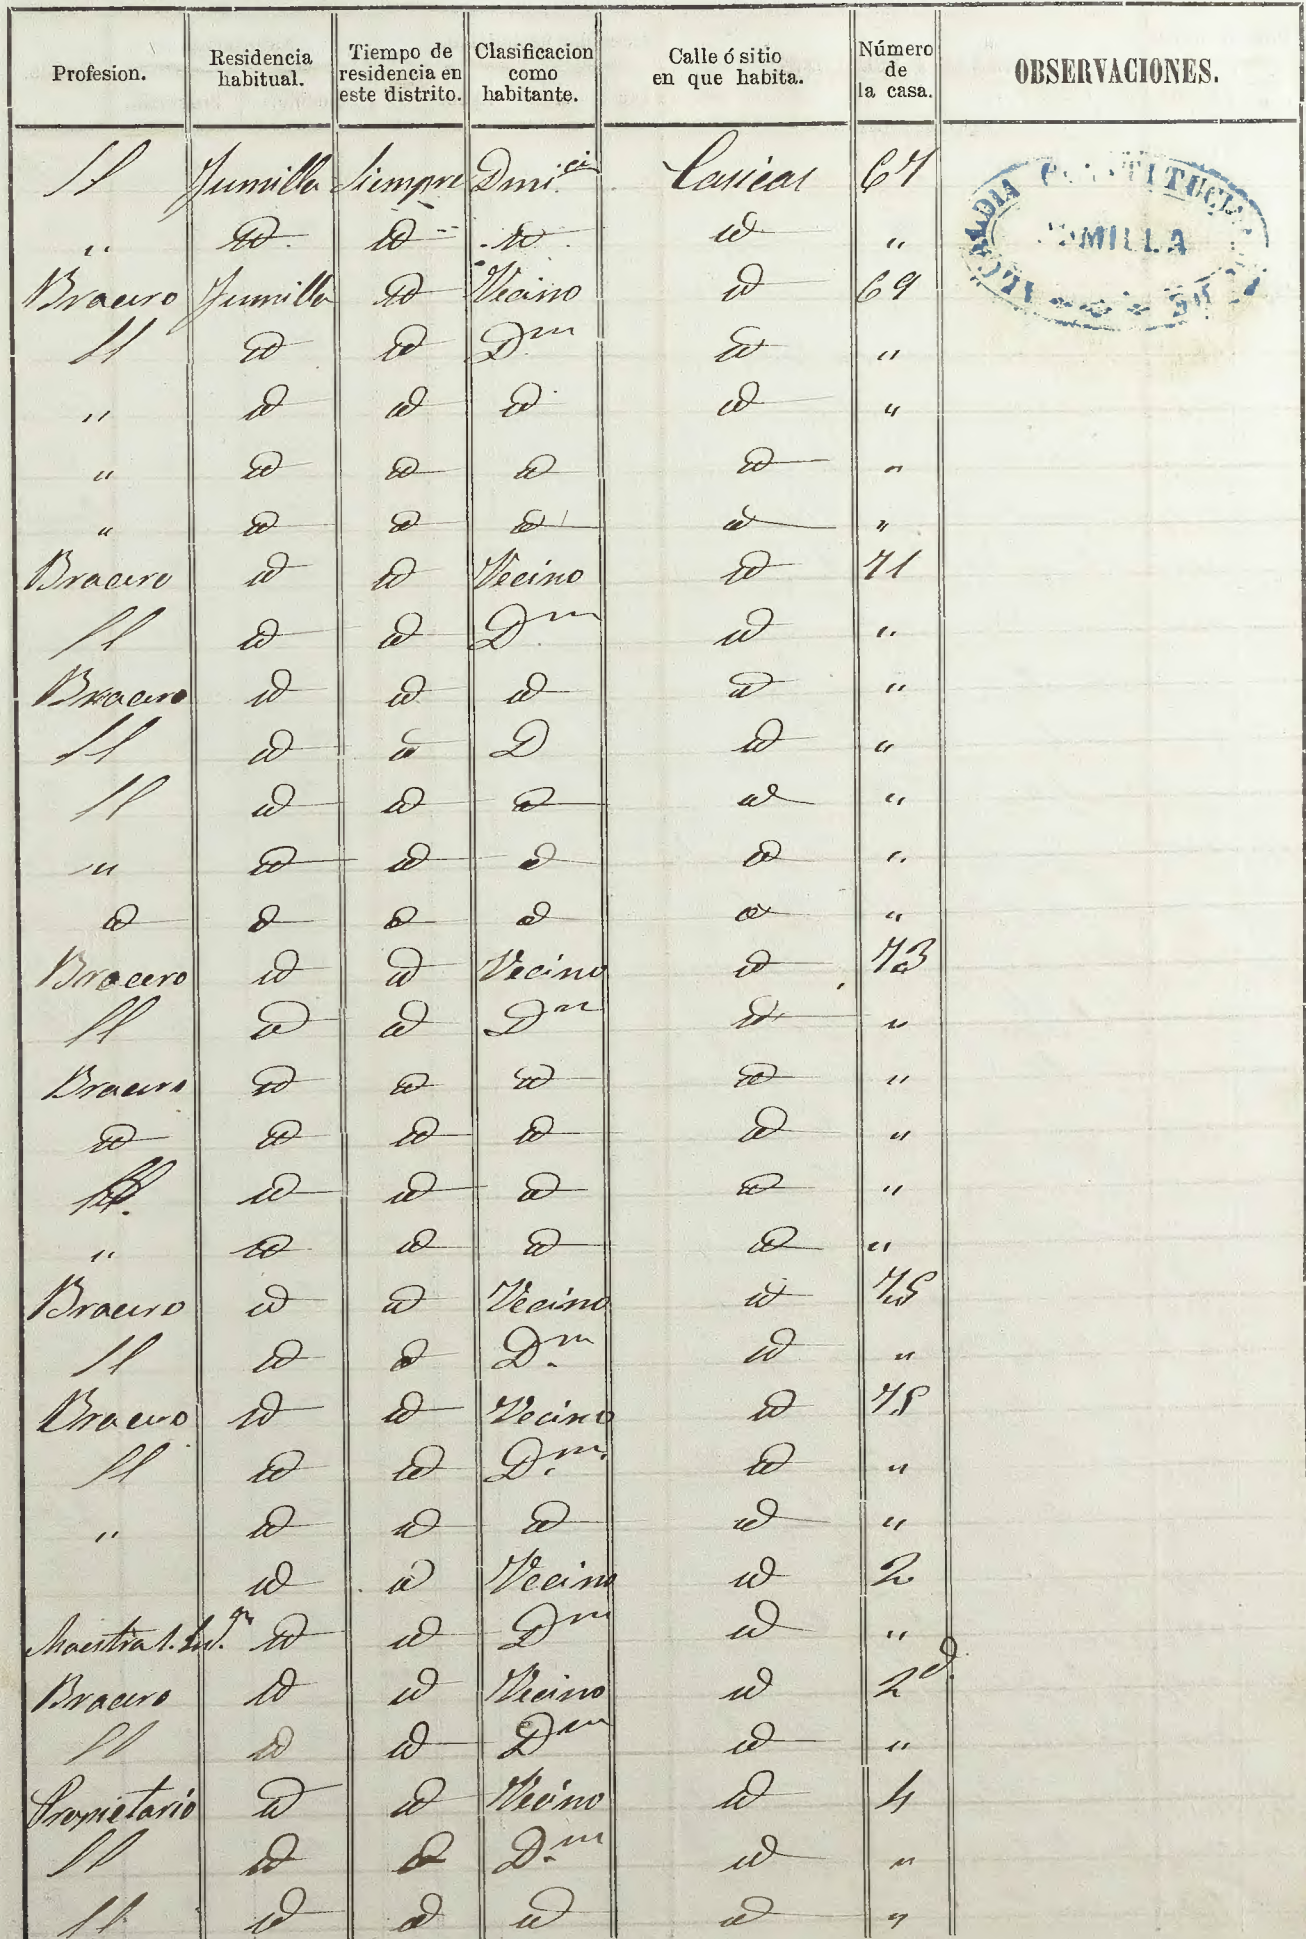 Profesion. Residencia habitual. Tiempo de residencia en este distrito. Clasificacion como habitante. Calle ó sitio en que habita. Número de la casa. OBSERVACIONES.
" Jumilla Siempre Dmi.ci Casicas 67
" id id id id "
Bracero Jumilla id Vecino id 69
" id id Dm id "
" id id id id "
" id id id id "
" id id id id "
Bracero id id Vecino id 71
" id id Dm id "
Bracero id id id id "
" id id D id "
" id id id id "
" id id id id "
id id id id id "
Bracero id id Vecino id 73
" id id Dm id "
Bracero id id id id "
id id id id id "
" id id id id "
" id id id id "
Bracero id id Vecino id 75
" id id D.m id "
Bracero id id Vecino id
" id id D.m id "
" id id id id "
id id Vecino id 2
Maestra id id Dm id "
Bracero id id Vecino id 2d.
" id id Dm id "
Propietario id id Vecino id 4
" id id D.m id "
" id id id id "
ALCALDIA CONSTITUCIONAL
JUMILLA